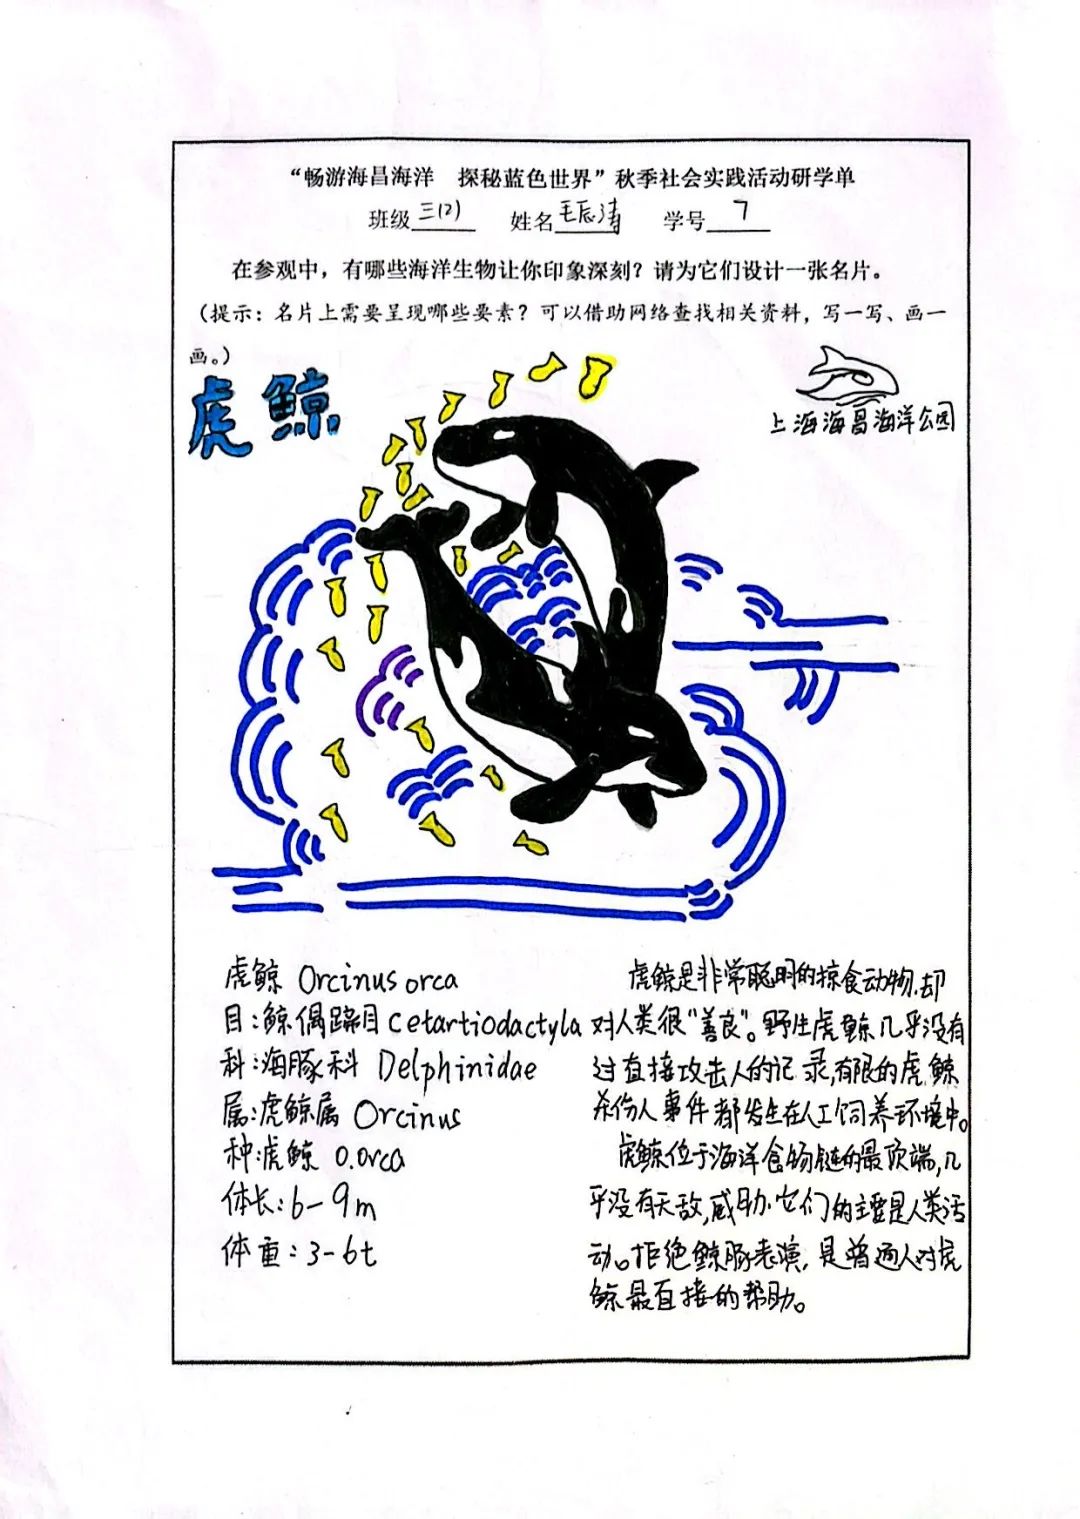 “畅游海昌海洋　探秘蓝色世界”秋季社会实践活动研学单
班级三(2)　姓名王辰涛　学号7
在参观中，有哪些海洋生物让你印象深刻？请为它们设计一张名片。
（提示：名片上需要呈现哪些要素？可以借助网络查找相关资料，写一写、画一
画。）
虎鲸
上海海昌海洋公园
虎鲸 Orcinus orca
目:鲸偶蹄目 Cetartiodactyla
科:海豚科 Delphinidae
属:虎鲸属 Orcinus
种:虎鲸 O.orca
体长:6-9m
体重:3-6t
虎鲸是非常聪明的掠食动物,却
对人类很“善良”。野生虎鲸几乎没有
过直接攻击人的记录,有限的虎鲸
杀伤人事件都发生在人工饲养环境中。
虎鲸位于海洋食物链的最顶端,几
乎没有天敌,威胁它们的主要是人类活
动。拒绝鲸豚表演,是普通人对虎
鲸最直接的帮助。